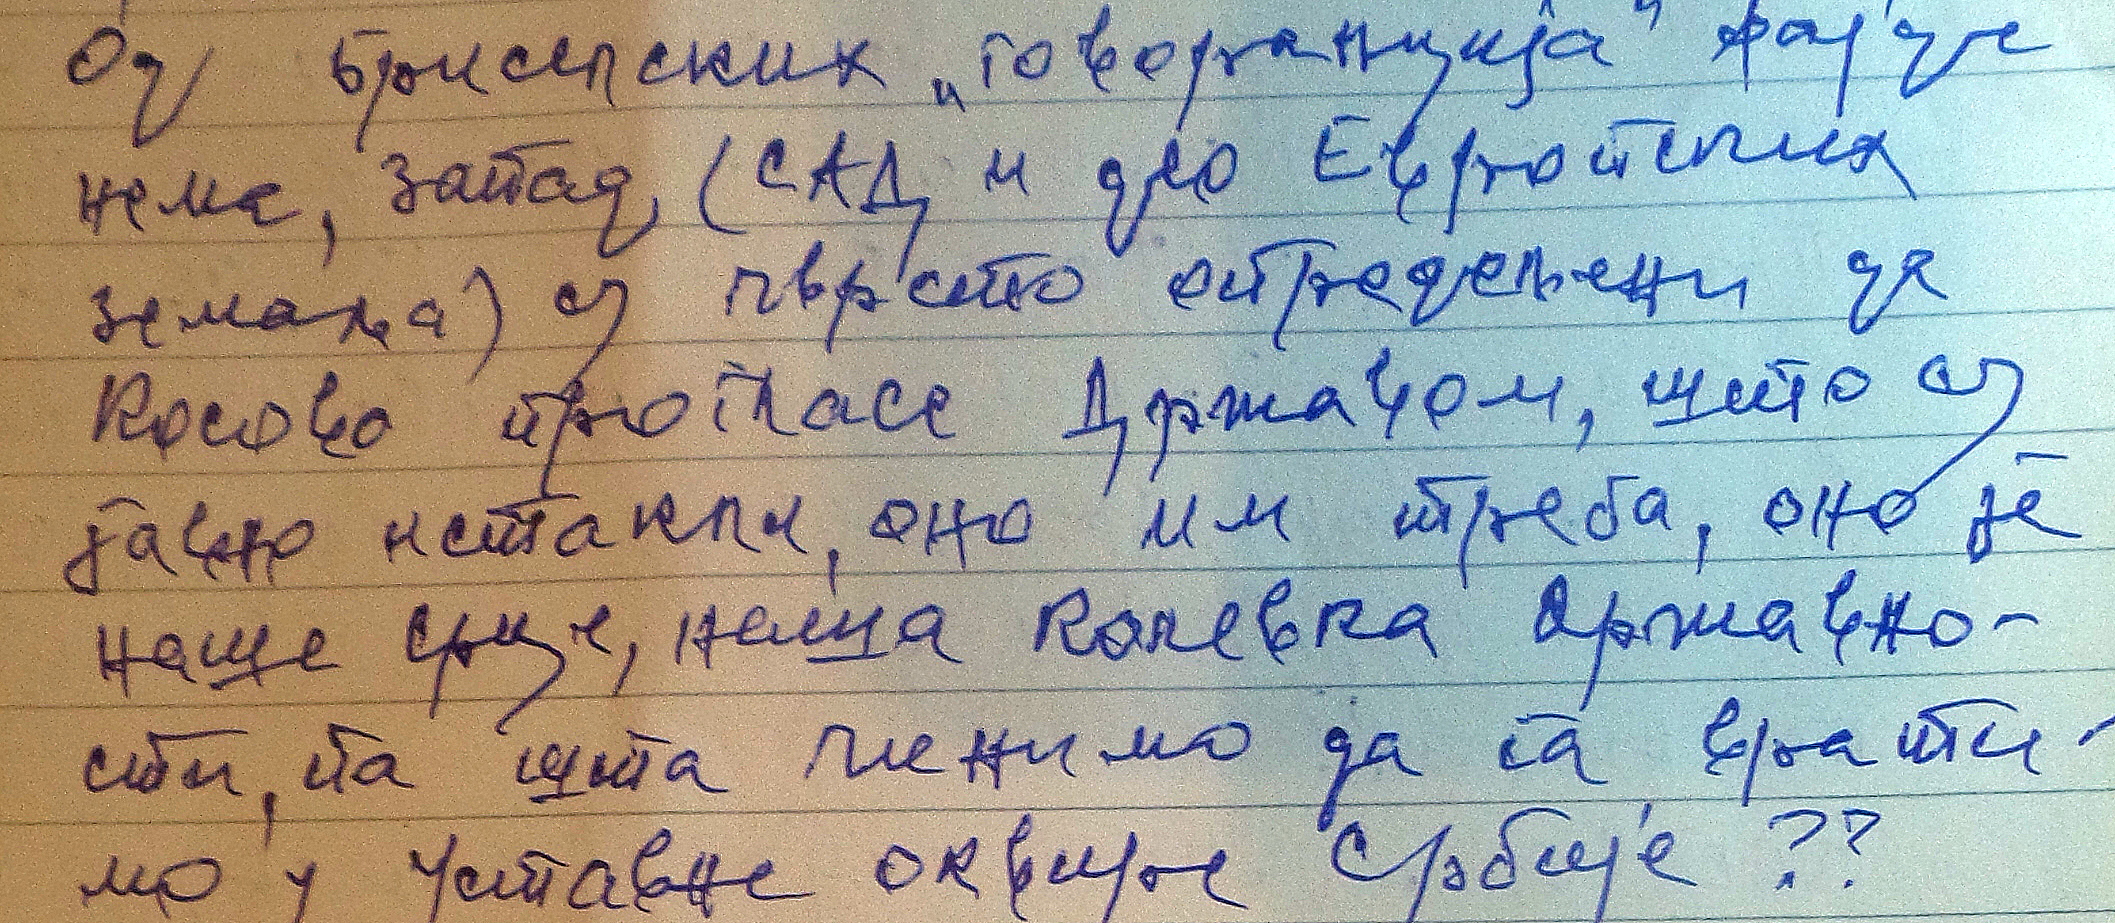 Од бриселских „говоранција" фајде
нема, запад, (САД и део Европских
земаља) су чврсто опредељени да
Косово прогласе Државом, што су
јавно истакли, оно им треба, оно је
наше срце, наша Колевка државно-
сти, па шта чинимо да га врати-
мо у Уставне оквире Србије ??